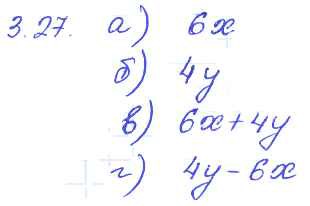 3.27. а) 6x
б) 4y
в) 6x+4y
г) 4y-6x